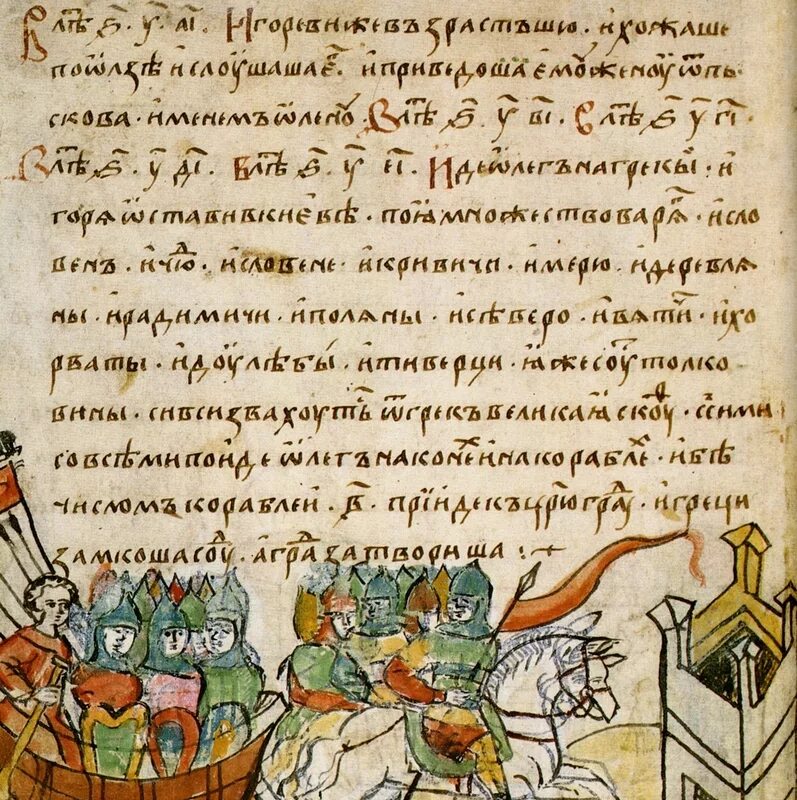 В лѣⷮ ҂ѕ҃. у҃. а҃і. Игоревиже възрастъшю. и хожаше
по ѡлзѣ и слоушаша еⷢ҇. и приведоша емоу женоу ѿ пь
скова. именемъ ѡленоу. В лѣⷮ ҂ѕ҃. у҃ в҃і. В лѣⷮ ҂ѕ҃ у҃ г҃і.
В лѣⷮ ҂ѕ҃. у҃ д҃і. В лѣⷮ ҂ѕ҃. у҃ е҃і. Иде ѡлегъ на грекы. и
горѧ ѡставив киевѣ. поӕ множество варѧⷢ. и сло
венъ. и чюⷣ. и словене. и кривичи. и мерю. и деревлѧ
ны. и радимичи. и полѧны. и сѣверо. и вѧтиⷱ. и хо
рваты. и доулѣбы. и тиверци. ӕже соуⷮ толко
вины. си вси звахоутьⷭ ѿ грекъ великаӕ скоуⷴ. с сими
со всѣми поиде ѡлегъ на конеⷯ и на кораблеⷯ. и бѣ
числомъ кораблеи. в҃. прїиде къ црⷭ҇юграⷣу. и греци
замкоша соуⷣ. а граⷣ затвориша :~